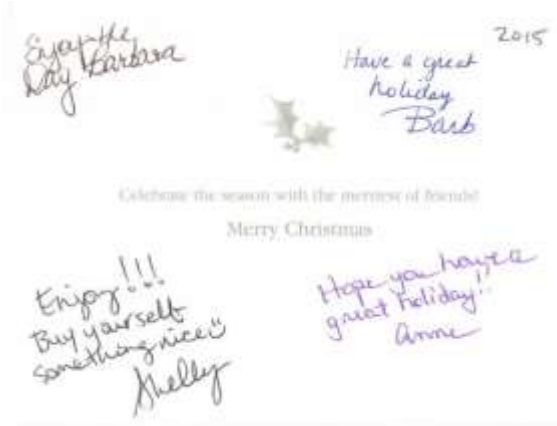 Enjoy the
Day Barbara
2015
Have a great
holiday
Barb
Celebrate the season with the merriest of friends!
Merry Christmas
Enjoy!!!
Buy yourself
something nice
Shelly
Hope you have a
great holiday!!
Anne